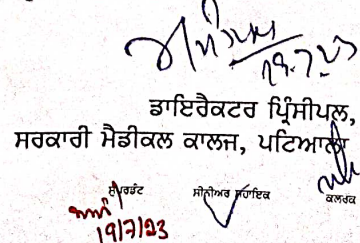 19.7.23
ਡਾਇਰੈਕਟਰ ਪ੍ਰਿੰਸੀਪਲ,
ਸਰਕਾਰੀ ਮੈਡੀਕਲ ਕਾਲਜ, ਪਟਿਆਲਾ
ਸੁਪਰਡੰਟ ਸੀਨੀਅਰ ਸਹਾਇਕ ਕਲਰਕ
19/7/23